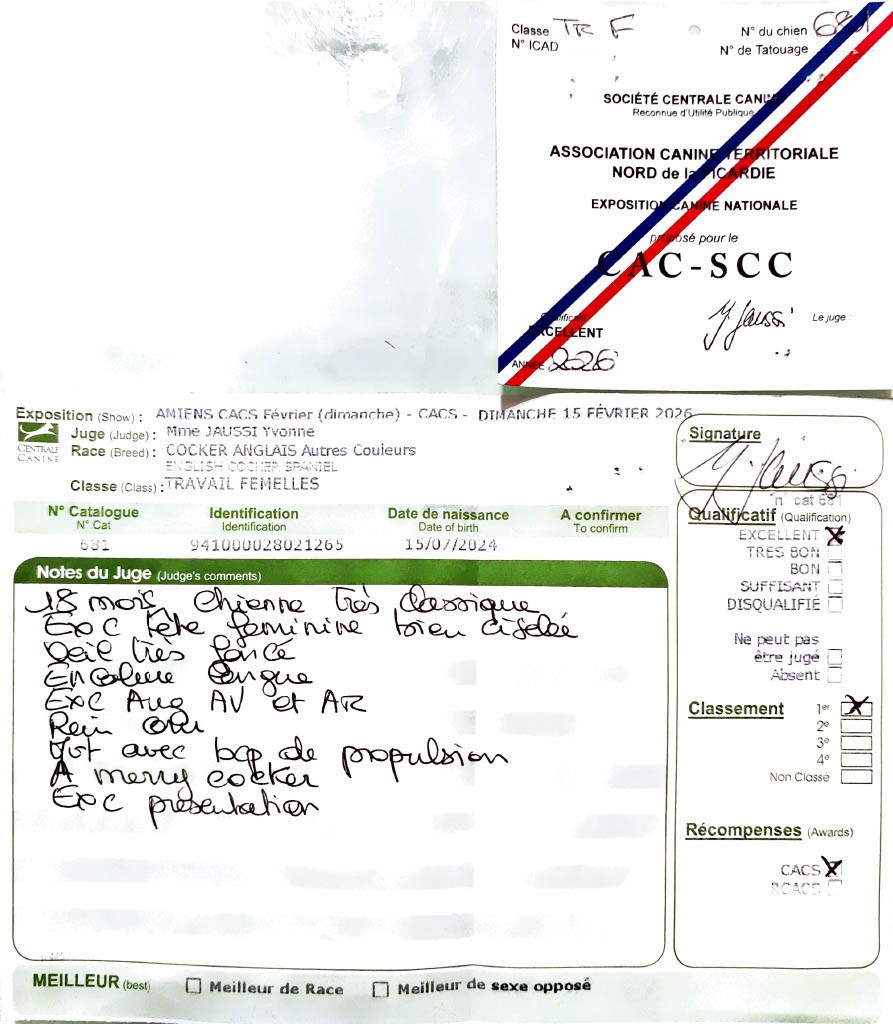 Classe TR F N° du chien 681
N° ICAD N° de Tatouage
SOCIÉTÉ CENTRALE CANINE
Reconnue d'Utilité Publique
ASSOCIATION CANINE TERRITORIALE
NORD de la PICARDIE
EXPOSITION CANINE NATIONALE
proposé pour le
CAC-SCC
Qualificatif
EXCELLENT
Y Jaussi Le juge
ANNÉE 2026
Exposition (Show) : AMIENS CACS Février (dimanche) - CACS - DIMANCHE 15 FÉVRIER 2026
Juge (Judge) : Mme JAUSSI Yvonne
CENTRALE CANINE
Race (Breed) : COCKER ANGLAIS Autres Couleurs
ENGLISH COCKER SPANIEL
Classe (Class) : TRAVAIL FEMELLES
Signature
Y. Jaussi
N° Catalogue Identification Date de naissance A confirmer
N° Cat Identification Date of birth To confirm
681 941000028021265 15/07/2024
Notes du Juge (Judge's comments)
18 mois, chienne très classique
Exc tête feminine bien ciselée
Oeil très foncé
Encolure longue
Exc Ang AV et AR
Rein
Mvt avec bcp de propulsion
A merry cocker
Exc présentation
n° cat 681
Qualificatif (Qualification)
EXCELLENT X
TRES BON
BON
SUFFISANT
DISQUALIFIÉ
Ne peut pas
être jugé
Absent
Classement 1er X
2e
3e
4e
Non Classé
Récompenses (Awards)
CACS X
RCACS
MEILLEUR (best) Meilleur de Race Meilleur de sexe opposé